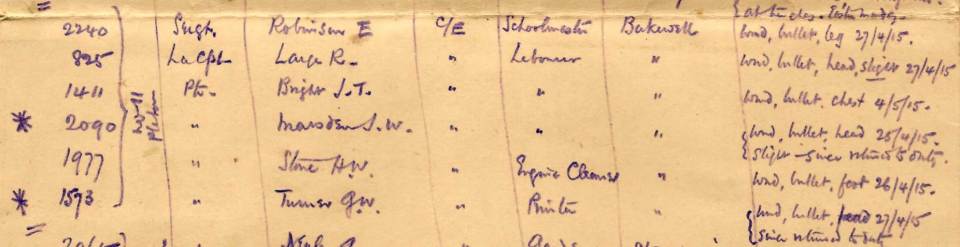 2240 Sergt. Robinson E C/E Schoolmaster Bakewell wnd, bullet, leg 27/4/15.
825 La Cpl. Large R. " Labourer " wnd, bullet, head, slight 27/4/15
1411 Pte. Bright J.T. " " " wnd, bullet, chest 4/5/15.
No 11 Platoon
* 2090 " Marsden J.W. " " " wnd, bullet, head 25/4/15.
slight - since returned to duty.
1977 " Stone H.W. " Engine Cleaner " wnd, bullet, foot 26/4/15.
* 1573 " Turner G.W. " Printer " wnd, bullet, head 27/4/15
since returned to duty